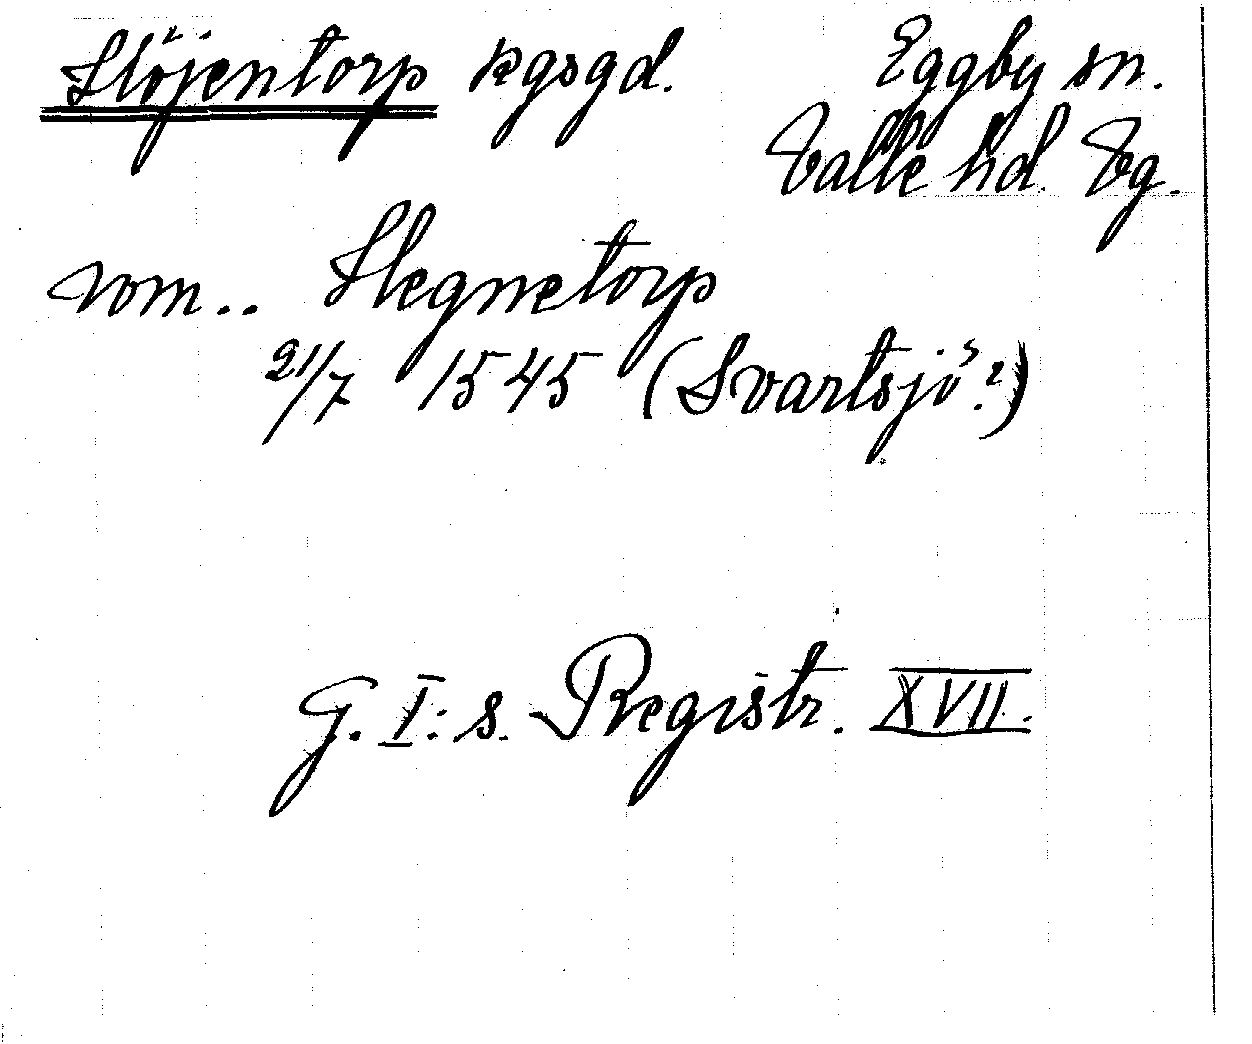 Slöjentorp kgsgd. Eggby sn.
Valle hd. Vg.
vom.. Slegnetorp
21/7 1545 (Svartsjö?)
G. I:s. Registr. XVII.